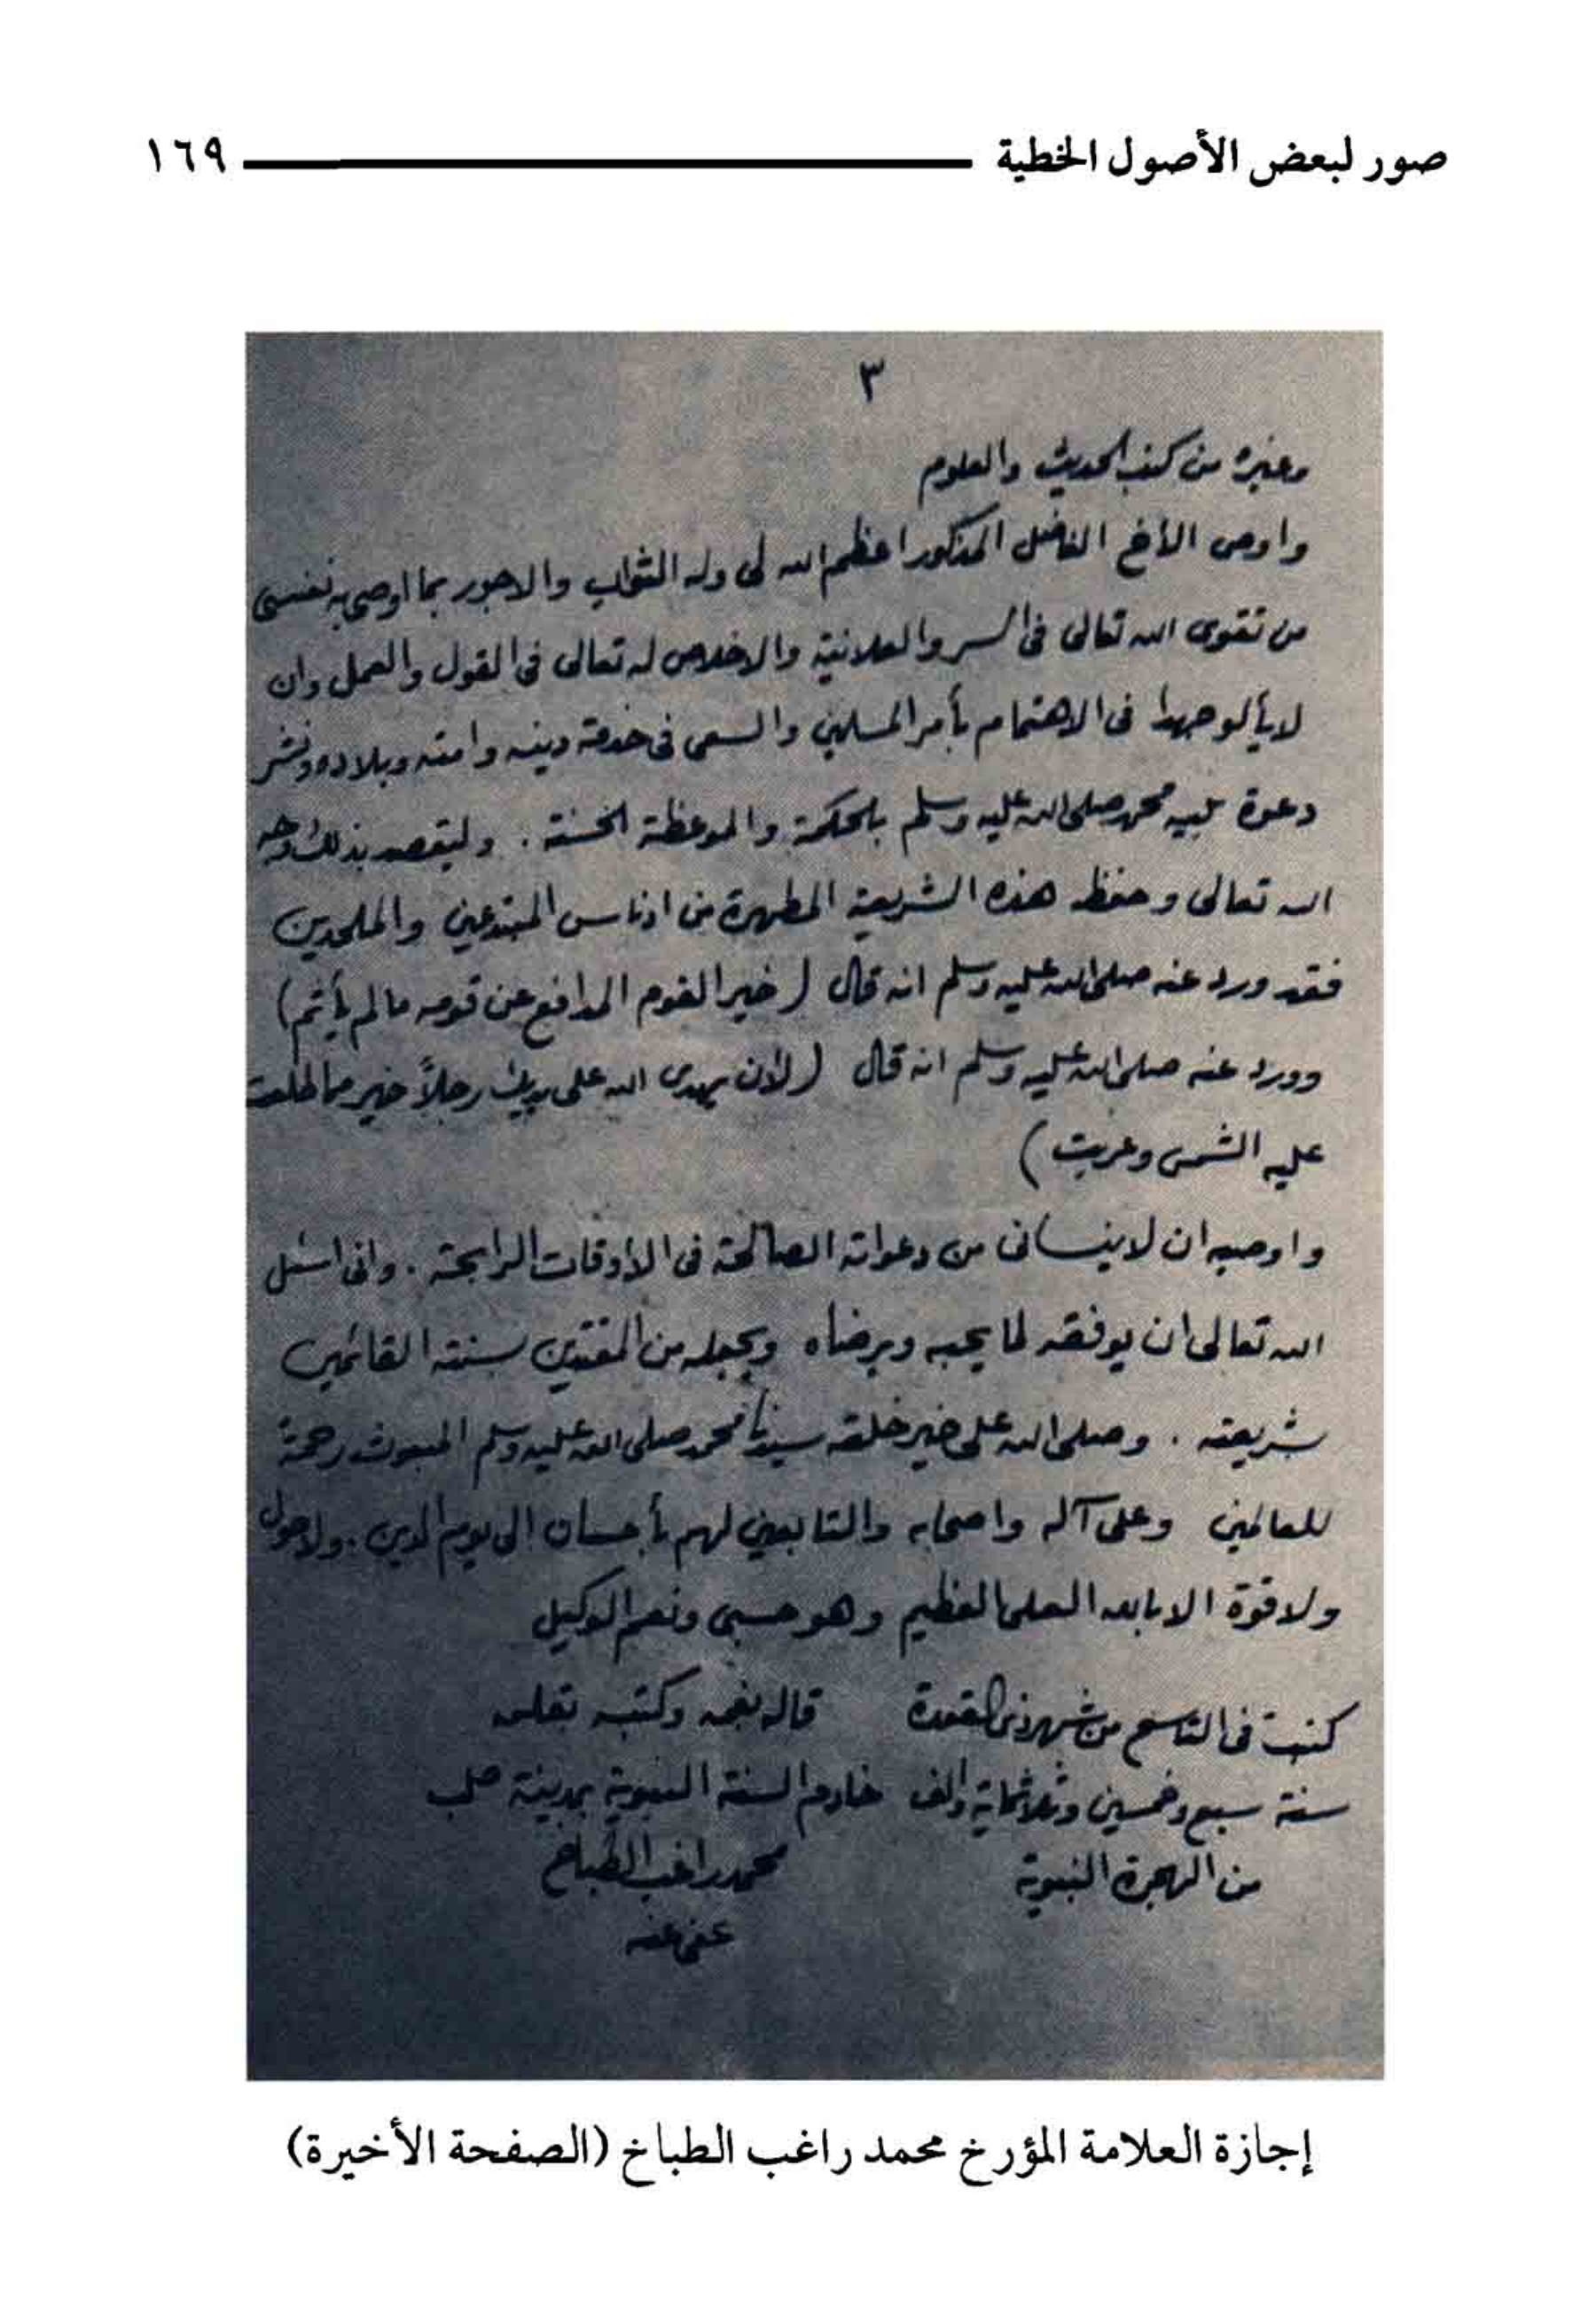 صور لبعض الأصول الخطية ١٦٩
٣
وغيره من كتب الحديث والعلوم
واوصى الأخ الفاضل المذكور اعظم الله لى وله الثواب والاجور بما اوصى به نفسى
من تقوى الله تعالى فى السر والعلانية والاخلاص له تعالى فى القول والعمل وان
لا يألو جهدا فى الاهتمام بأمر المسلمين والسعى فى خدمة دينه وامته وبلاده ونشر
دعوة نبيه محمد صلى الله عليه وسلم بالحكمة والموعظة الحسنة . وليقصد بذلك وجه
الله تعالى وحفظ هذه الشريعة المطهرة من ادناس المبتدعين والملحدين
فقد ورد عنه صلى الله عليه وسلم انه قال ( خير القوم المدافع عن قومه ما لم يأثم )
وورد عنه صلى الله عليه وسلم انه قال ( لأن يهدى الله على يديك رجلاً خير مما طلعت
عليه الشمس وغربت )
واوصيه ان لا ينسانى من دعواته الصالحة فى الاوقات الرابحة . وانى اسئل
الله تعالى ان يوفقه لما يحبه ويرضاه ويجعله من المقتدين بسنته القائمين
بشريعته . وصلى الله على خير خلقه سيدنا محمد صلى الله عليه وسلم المبعوث رحمة
للعالمين وعلى آله واصحابه والتابعين لهم بأحسان الى يوم الدين . ولا حول
ولا قوة الا بالله العلى العظيم وهو حسبى ونعم الوكيل
كتبت فى التاسع من شهر ذى القعدة قاله بفمه وكتبه بقلمه
سنة سبع وخمسين وثلاثماية والف خادم السنة النبوية بمدينة حلب
من الهجرة النبوية محمد راغب الطباخ
عفى عنه
إجازة العلامة المؤرخ محمد راغب الطباخ (الصفحة الأخيرة)